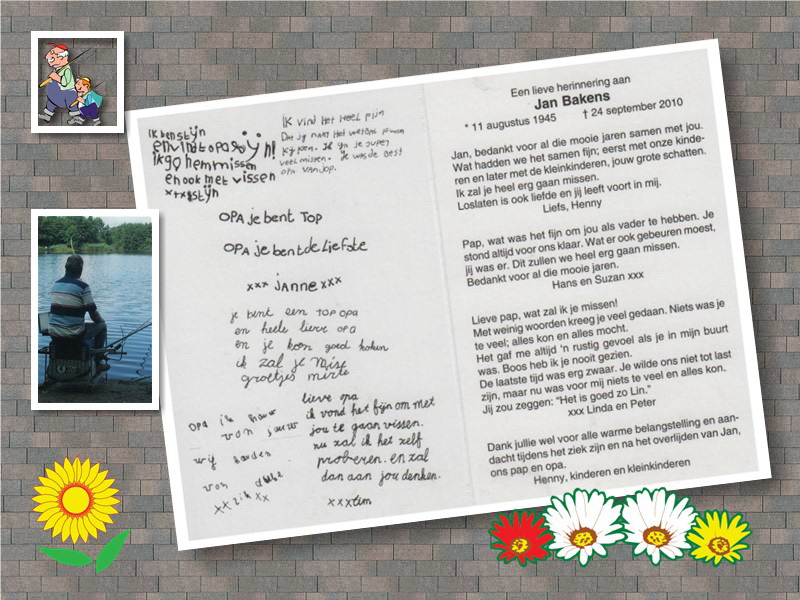 Ik ben stijn
en vind opa zijn!
Ik ga hem missen
en ook met vissen
xxx stijn
Ik vind het heel fijn
Dat jij naar het
Jij was de best
opa van Jop.
OPA je bent Top
OPA je bent de Liefste
xxx janne xxx
je bent een top opa
en heele lieve opa
en je kon goed koken
ik zal je mise
groetjes mirte
opa ik hauw
van jauw
wij hauden
van
xx zik xx
lieve opa
ik vond het fijn om met
jou te gaan vissen.
nu zal ik het zelf
proberen. en zal
dan aan jou denken.
xxx tim
Een lieve herinnering aan
Jan Bakens
* 11 augustus 1945 † 24 september 2010
Jan, bedankt voor al die mooie jaren samen met jou.
Wat hadden we het samen fijn; eerst met onze kinde-
ren en later met de kleinkinderen, jouw grote schatten.
Ik zal je heel erg gaan missen.
Loslaten is ook liefde en jij leeft voort in mij.
Liefs, Henny
Pap, wat was het fijn om jou als vader te hebben. Je
stond altijd voor ons klaar. Wat er ook gebeuren moest,
jij was er. Dit zullen we heel erg gaan missen.
Bedankt voor al die mooie jaren.
Hans en Suzan xxx
Lieve pap, wat zal ik je missen!
Met weinig woorden kreeg je veel gedaan. Niets was je
te veel; alles kon en alles mocht.
Het gaf me altijd 'n rustig gevoel als je in mijn buurt
was. Boos heb ik je nooit gezien.
De laatste tijd was erg zwaar. Je wilde ons niet tot last
zijn, maar nu was voor mij niets te veel en alles kon.
Jij zou zeggen: "Het is goed zo Lin."
xxx Linda en Peter
Dank jullie wel voor alle warme belangstelling en aan-
dacht tijdens het ziek zijn en na het overlijden van Jan,
ons pap en opa.
Henny, kinderen en kleinkinderen